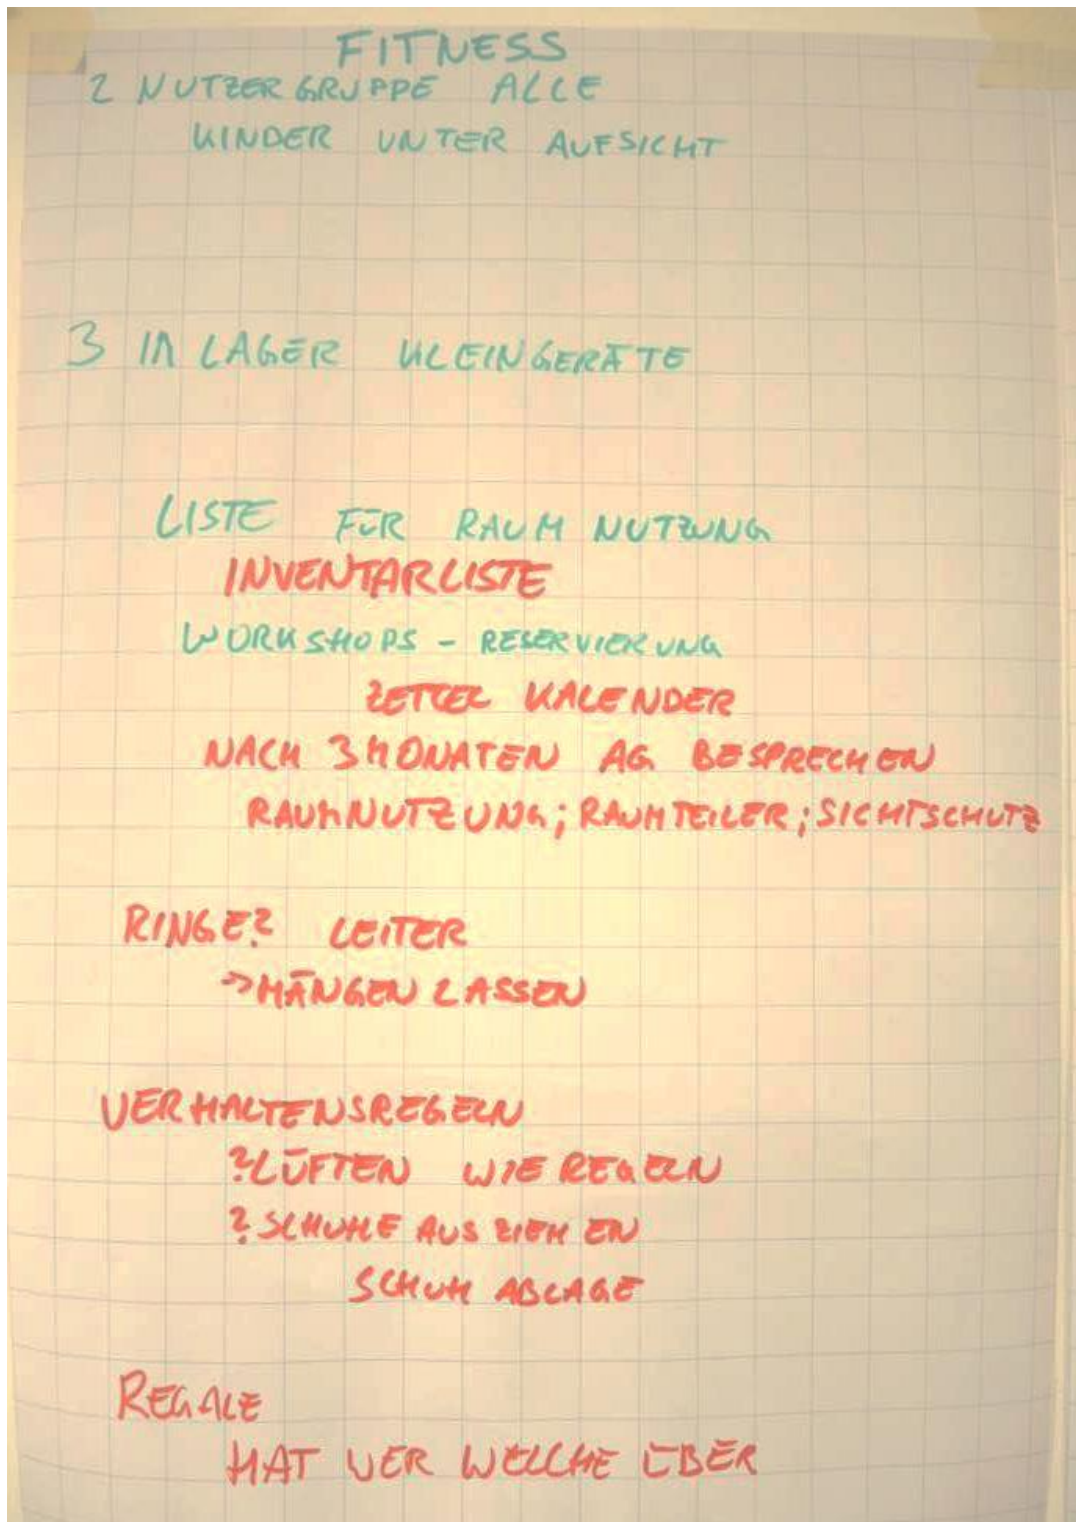 FITNESS
2 NUTZERGRUPPE ALLE
KINDER UNTER AUFSICHT
3 IM LAGER KLEINGERÄTE
LISTE FÜR RAUM NUTZUNG
INVENTARLISTE
WORKSHOPS - RESERVIERUNG
ZETTEL KALENDER
NACH 3 MONATEN AG BESPRECHEN
RAUMNUTZUNG; RAUMTEILER; SICHTSCHUTZ
RINGE? LEITER
-> HÄNGEN LASSEN
VERHALTENSREGELN
? LÜFTEN WIE REGELN
? SCHUHE AUSZIEHEN
SCHUH ABLAGE
REGALE
HAT WER WELCHE ÜBER